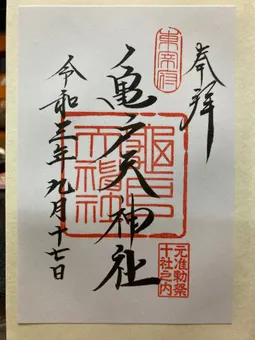 奉拝
東宰府
亀戸天神社
元准勅祭
十社之内
令和三年九月十七日